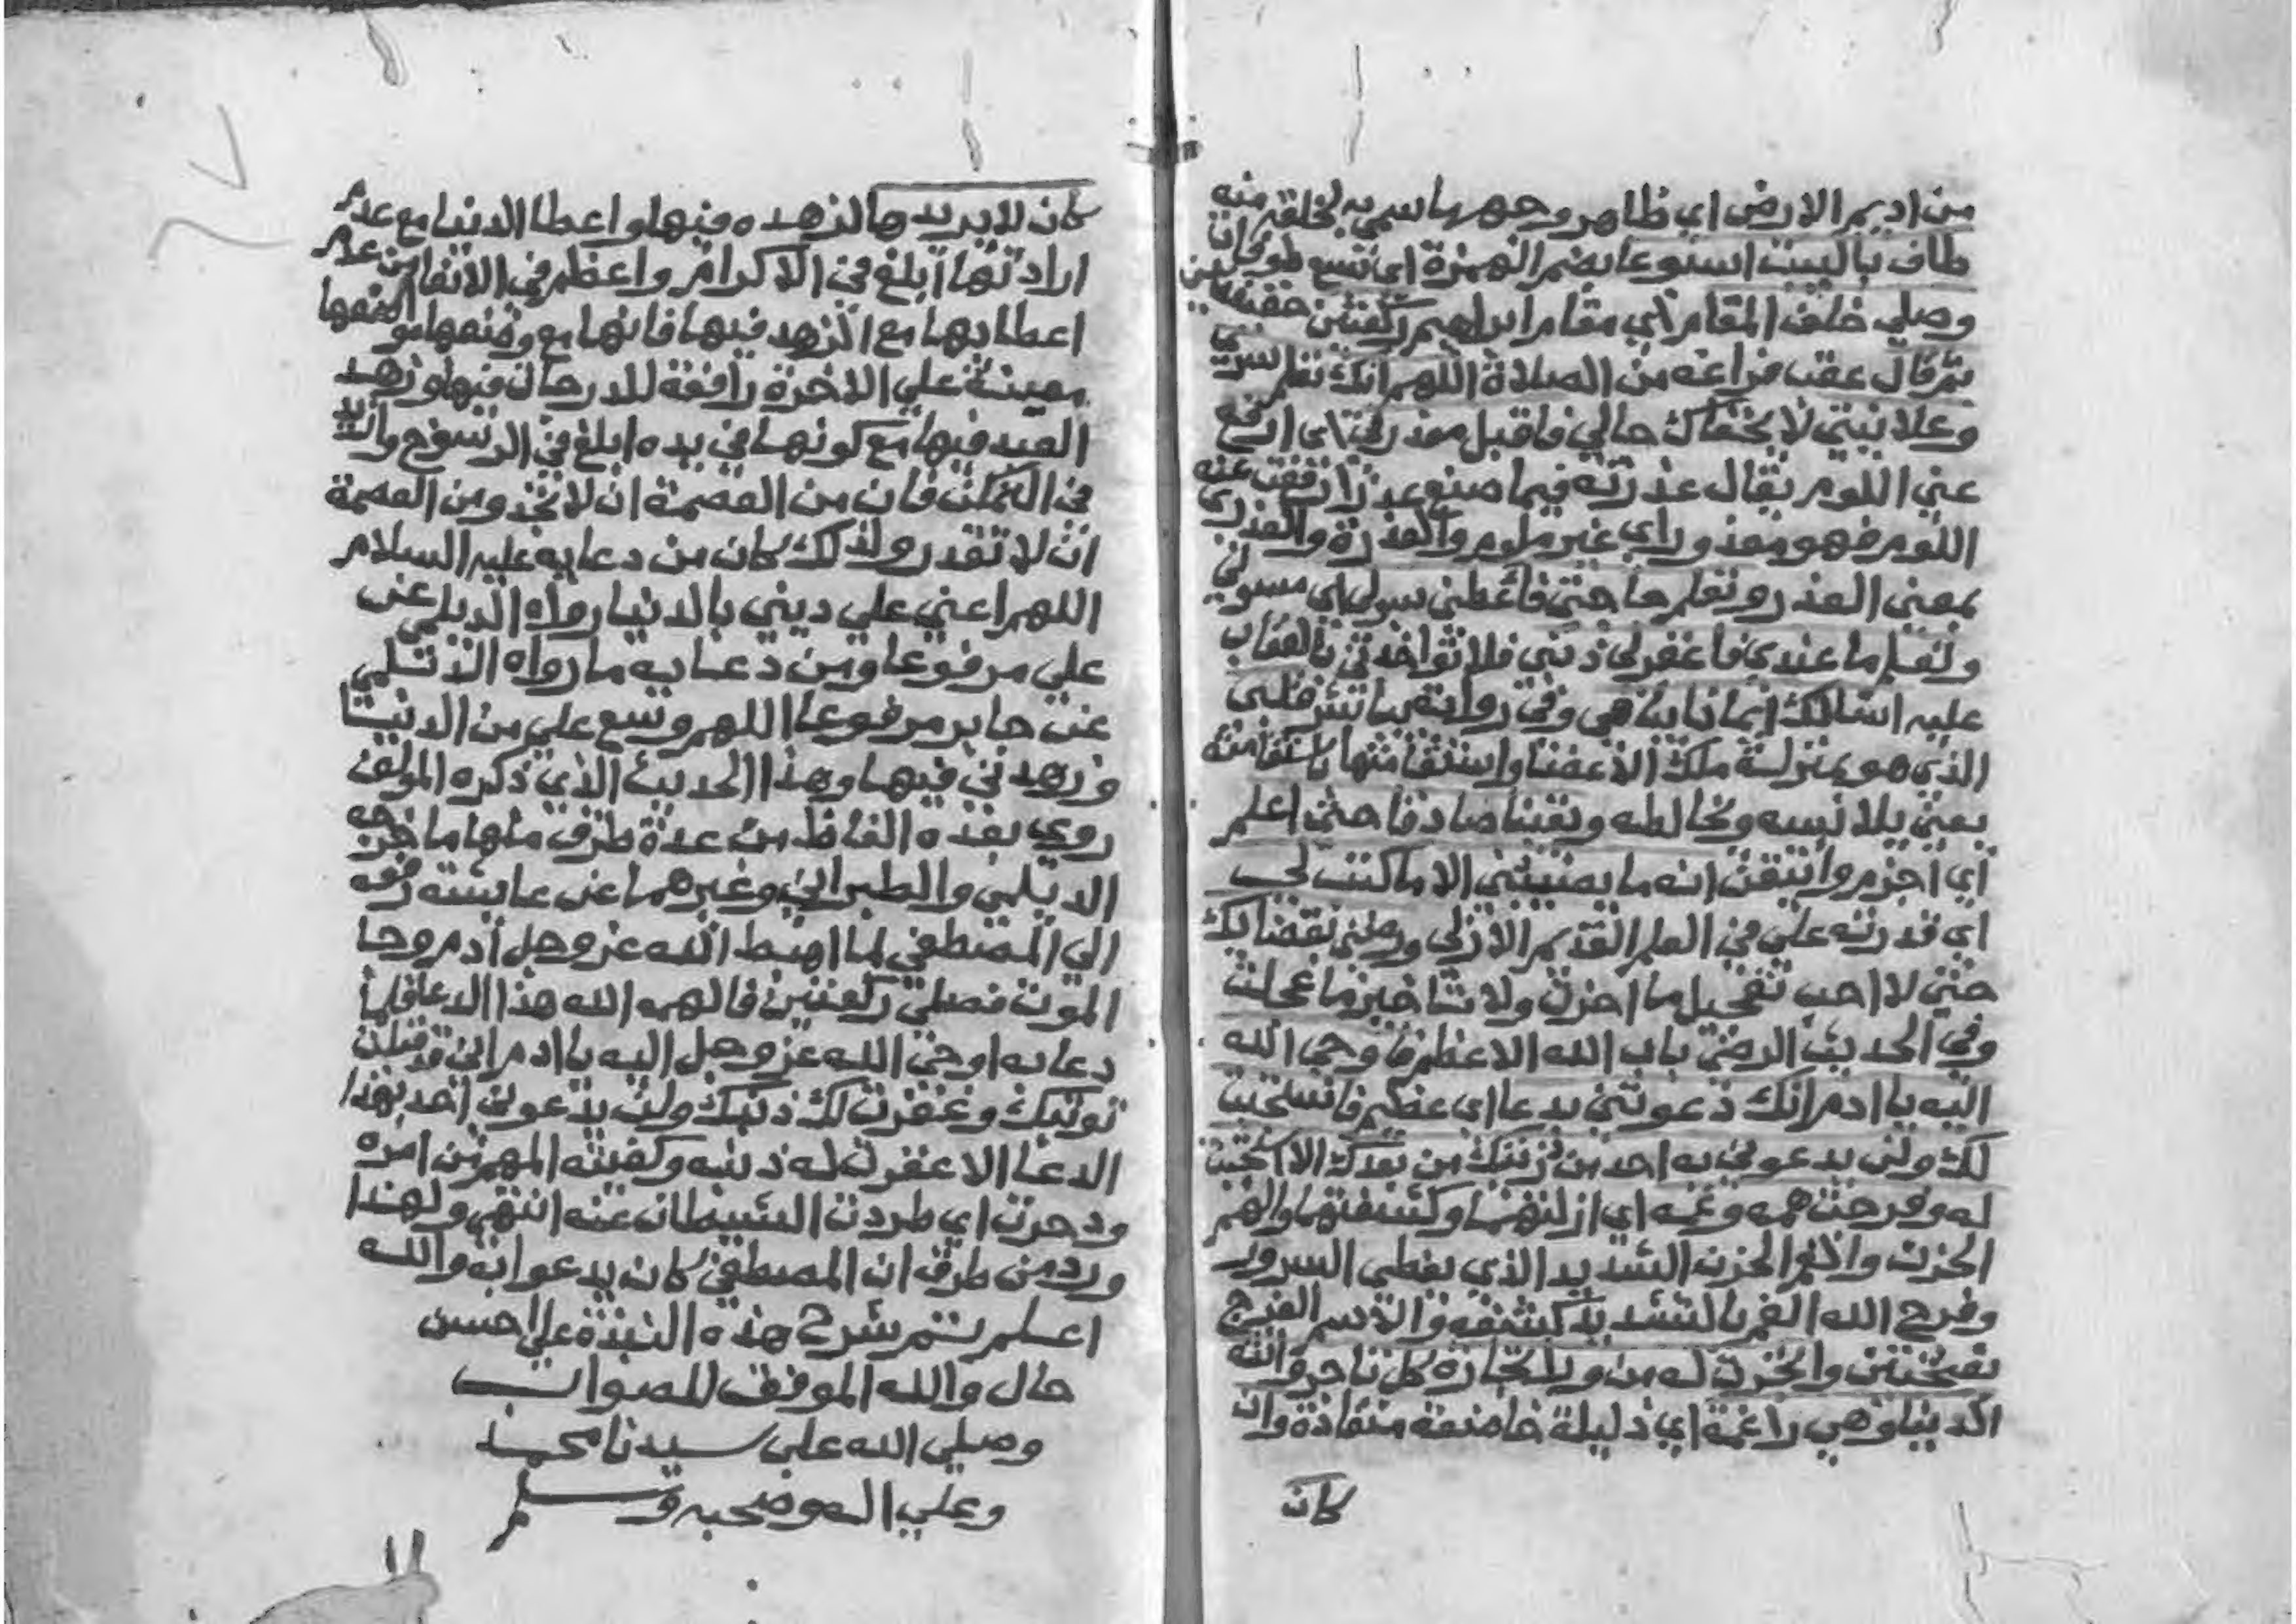 من اديم الارض اي ظاهر وجهها سمي به لخلقه منه
طاف بالبيت اسبوعا بضم الهمزة اي تسع طوفات
وصلي خلف المقام اي مقام ابراهيم ركعتين
ثم قال عقب فراغه من الصلاة اللهم انك تعلم سري
وعلانيتي لا يخفاك حالي فاقبل معذرتي اي ارفع
عني اللوم يقال عذرته فيما صنع عذرا رفعت عنه
اللوم فهو معذور اي غير ملوم والعذرة والعذري
بمعني العذر وتعلم حاجتي فاعطني سولي اي مسولي
وتعلم ما عندي فاغفر لي ذنبي فلا تواخذني بالعقاب
عليه اسالك ايمانا يباهي وفي رواية يباشر قلبي
الذي هو بمنزلة ملك الاعضا واستقامتها باستقامته
يعني يلابسه ويخالطه ويقينا صادقا حتي اعلم
اي اجزم واتيقن انه ما يصيبني الا ما كتبت لي
اي قدرته علي في العلم القديم الازلي ورضني بقضايك
حتي لا احب تعجيل ما اخرت ولا تاخير ما عجلت
وفي الحديث الرضي باب الله الاعظم فاوحي الله
اليه يا ادم انك دعوتني بدعا اي عظيم فاستجبت
لك ولن يدعوني به احد من ذريتك من بعدك الا استجبت
له وفرجت همه وغمه اي ازلتهما وكشفتهما والهم
الحزن والغم الحزن الشديد الذي يغطي السرور
وفرج الله الغم بالتشديد كشفه والاسم الفرج
بفتحتين واتجرت له من ورا تجارة كل تاجر واتته
الدنيا وهي راغمة اي ذليلة خاضعة منقادة وان
كان
كان لا يريدها لزهده فيها واعطا الدنيا مع عدم
ارادتها ابلغ في الاكرام واعظم في الانعام من عدم
اعطايها مع الزهد فيها فانها مع وضعها موضعها
معينة علي الاخرة رافعة للدرجات فيها وزهد
العبد فيها مع كونها في يده ابلغ في الرسوخ وازيد
في التمكن فان من العصمة ان لا تجد ومن العصمة
ان لا تقدر ولذلك كان من دعايه عليه السلام
اللهم اعني علي ديني بالدنيا رواه الديلمي عن
علي مرفوعا ومن دعايه ما رواه الديلمي
عن جابر مرفوعا اللهم وسع علي من الدنيا
وزهدني فيها وهذا الحديث الذي ذكره المولف
روي بعدة الفاظ من عدة طرق منها ما خرجه
الديلمي والطبراني وغيرهما عن عايشة رفعه
الي المصطفي لما اهبط الله عز وجل ادم وجا
الموت فصلي ركعتين فالهمه الله هذا الدعا فلما
دعا به اوحي الله عز وجل اليه يا ادم اني قد قبلت
توبتك وغفرت لك ذنبك ولن يدعوني احد بهذا
الدعا الا غفرت له ذنبه وكفيته المهم من امره
ودحرت اي طردت الشيطان عنه انتهي ولهذا
ورد من طرق ان المصطفي كان يدعوا به والله
اعلم تم شرح هذه النبذة علي احسن
حال والله الموفق للصواب
وصلي الله علي سيدنا محمد
وعلي اله وصحبه وسلم